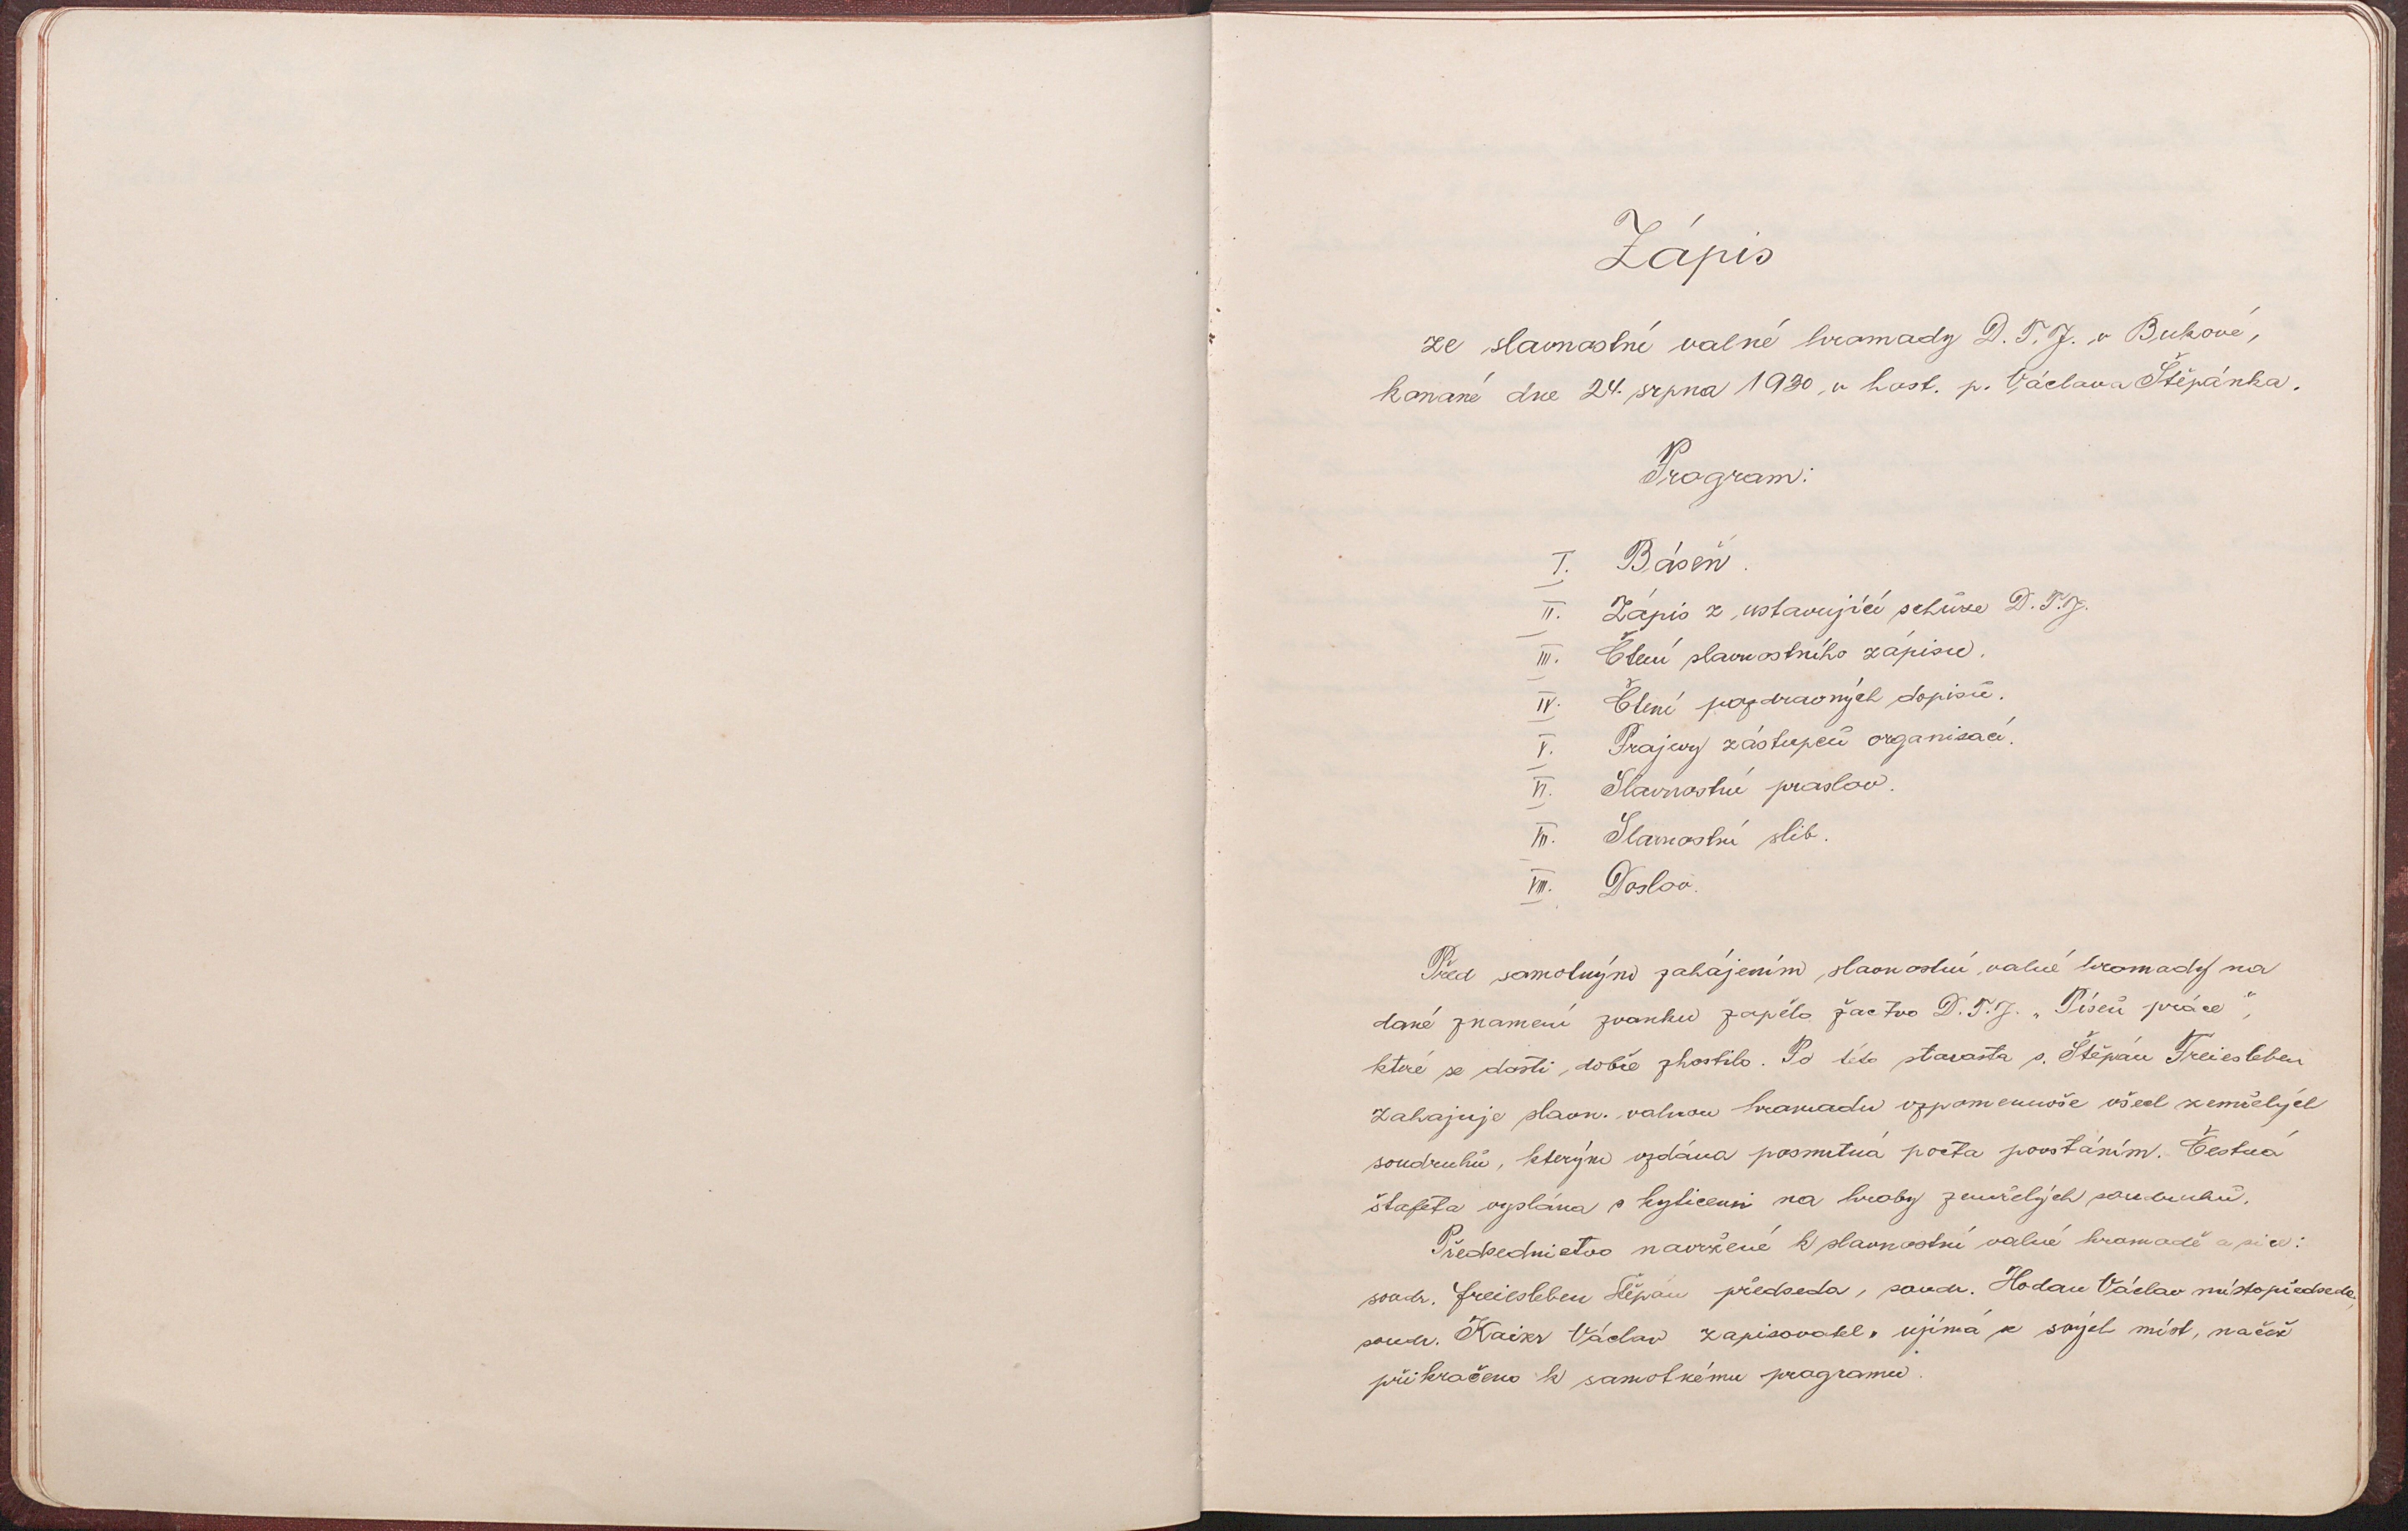 Zápis
ze slavnostní valné hromady D.T.J. v Bukové,
konané dne 24. srpna 1930, v host. p. Václava Štěpánka.
Program:
I. Báseň.
II. Zápis z ustavující schůze D.T.J.
III. Čtení slavnostního zápisu.
IV. Čtení pozdravných dopisů.
V. Projevy zástupců organisací.
VI. Slavnostní proslov.
VII. Slavnostní slib.
VIII. Doslov.
Před samotným zahájením slavnostní valné hromady na
dané znamení zvonku zapělo žactvo D.T.J. „Píseň práce",
které se dosti dobře zhostilo. Po této starosta s. Štěpán Freiesleben
zahajuje slavn. valnou hromadu vzpomenuvše všech zemřelých
soudruhů, kterým vzdána posmutná pocta povstáním. Čestná
štafeta vyslána s kyticemi na hroby zemřelých soudruhů.
Předsednictvo navržené k slavnostní valné hromadě a sice:
soudr. Freiesleben Štěpán předseda, soudr. Hodan Václav místopředseda,
soudr. Kaikr Václav zapisovatel, ujímá se svých míst, načež
přikračeno k samotnému programu.